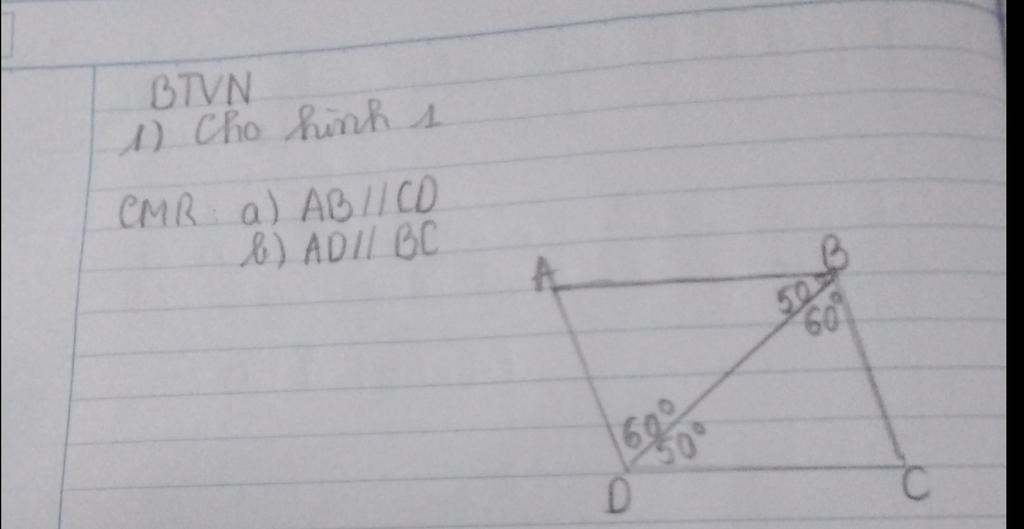 BTVN
1) Cho hình 1
CMR: a) AB//CD
b) AD// BC
A
B
50
60°
60°
50°
D
C